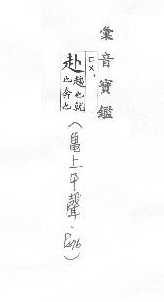 彙音寶鑑
赴
ㄈㄨˋ
趨也就
也奔也
(龜上平聲.P.76)